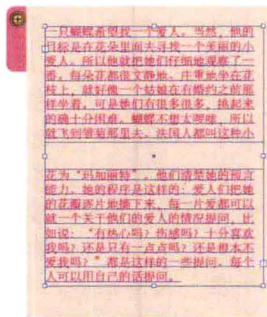 一只蝴蝶希望找一个爱人。当然，他的
目标是在花朵里面去寻找一个美丽的小
爱人。所以他就把她们仔细地观察了一
番。每朵花都很文静地、庄重地坐在花
枝上，就好像一个姑娘在有婚约之前那
样坐着。可是她们有很多很多，挑起来
的确十分困难。蝴蝶不想太啰嗦，所以
就飞到雏菊那里去。法国人都叫这种小
花为“玛加丽特”，他们清楚她的预言
能力。她的程序是这样的：爱人们把她
的花瓣逐片地摘下来，每一片爱都可以
就一个关于他们的爱人的情况提问，比
如说：“有热心吗？伤感吗？十分喜欢
我吗？还是只有一点点吗？还是根本不
爱我吗？”都是这样的一些提问。每个
人可以用自己的话提问。